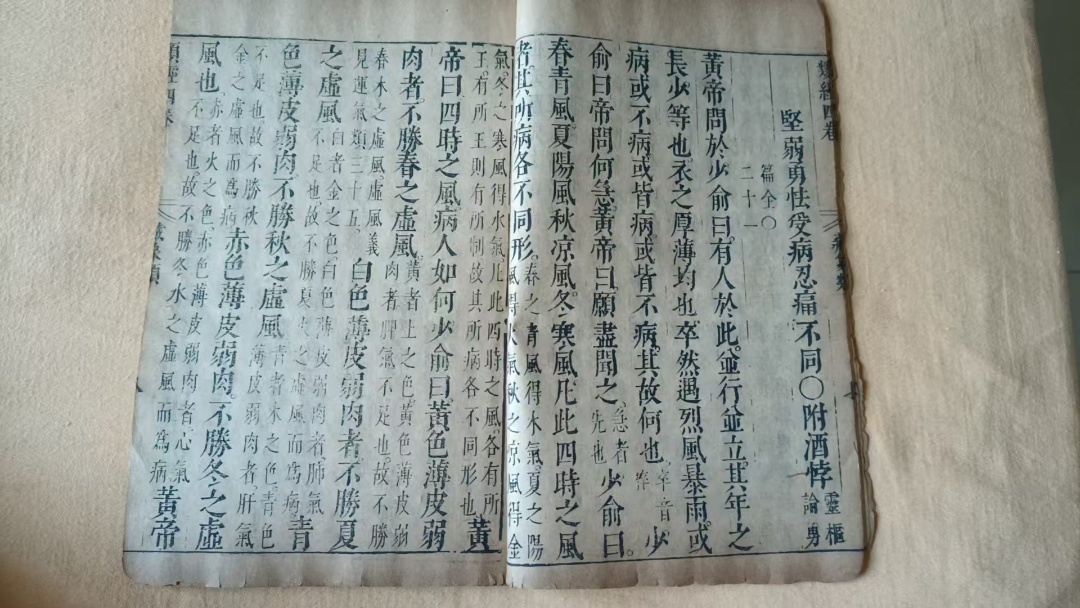 類經四卷
堅弱勇怯受病忍痛不同○附酒悖靈樞論勇
篇全○二十一
黃帝問於少俞曰有人於此並行並立其年之
長少等也衣之厚薄均也卒然遇烈風暴雨或
病或不病或皆病或皆不病其故何也卒音猝少
俞曰帝問何急黃帝曰願盡聞之急者先也少俞曰
春青風夏陽風秋凉風冬寒風凡此四時之風
者其所病各不同形春之青風得木氣夏之陽風得火氣秋之凉風得金
氣冬之寒風得水氣凡此四時之風各有所王有所王則有所制故其所病各不同形也黃
帝曰四時之風病人如何少俞曰黃色薄皮弱
肉者不勝春之虛風黃者土之色黃色薄皮弱肉者脾氣不足也故不勝
春木之虛風虛風義見運氣類三十五白色薄皮弱肉者不勝夏
之虛風白者金之色白色薄皮弱肉者肺氣不足也故不勝夏火之虛風而爲病青
色薄皮弱肉不勝秋之虛風青者木之色青色薄皮弱肉者肝氣
不足也故不勝秋金之虛風而爲病赤色薄皮弱肉不勝冬之虛
風也赤者火之色赤色薄皮弱肉者心氣不足也故不勝冬水之虛風而爲病黃帝
類經四卷 藏象類 八